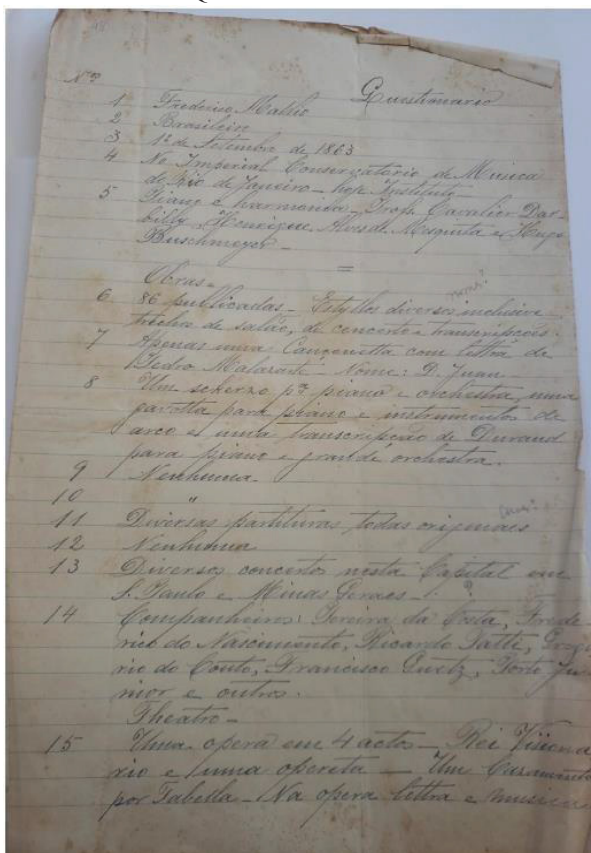 Nº Questionario
1 Frederico Mallio
2 Brasileiro
3 1º de Setembro de 1863
4 No Imperial Conservatorio de Musica
do Rio de Janeiro - hoje Instituto -
5 Piano e harmonia - Profs. Cavalier Dar-
billy, Henrique Alves de Mesquita e Hugo
Buschmeyer -
Obras -
6 86 publicadas - Estyllos diversos inclusive
trechos de salão, de concerto e transcripções.
7 Apenas uma Cançonetta com lettra de
Pedro Malazarte - Nome: D. Juan
8 Um scherzo pª piano e orchestra, uma
gavotta para piano e instrumentos de
arco e uma transcripção de Durand
para piano e grande orchestra.
9 Nenhuma.
10 "
11 Diversas partituras todas originaes
12 Nenhuma
13 Diversos concertos nesta Capital em
S. Paulo e Minas Geraes -
14 Companheiros: Pereira da Costa, Frede-
rico do Nascimento, Ricardo Tatti, Grego
rio do Couto, Francisco Porto Ju-
nior e outros.
Theatro -
15 Uma opera em 4 actos - Rei Visiona
rio e uma opereta - Um Casamento
por Tabella - Na opera lettra e musica